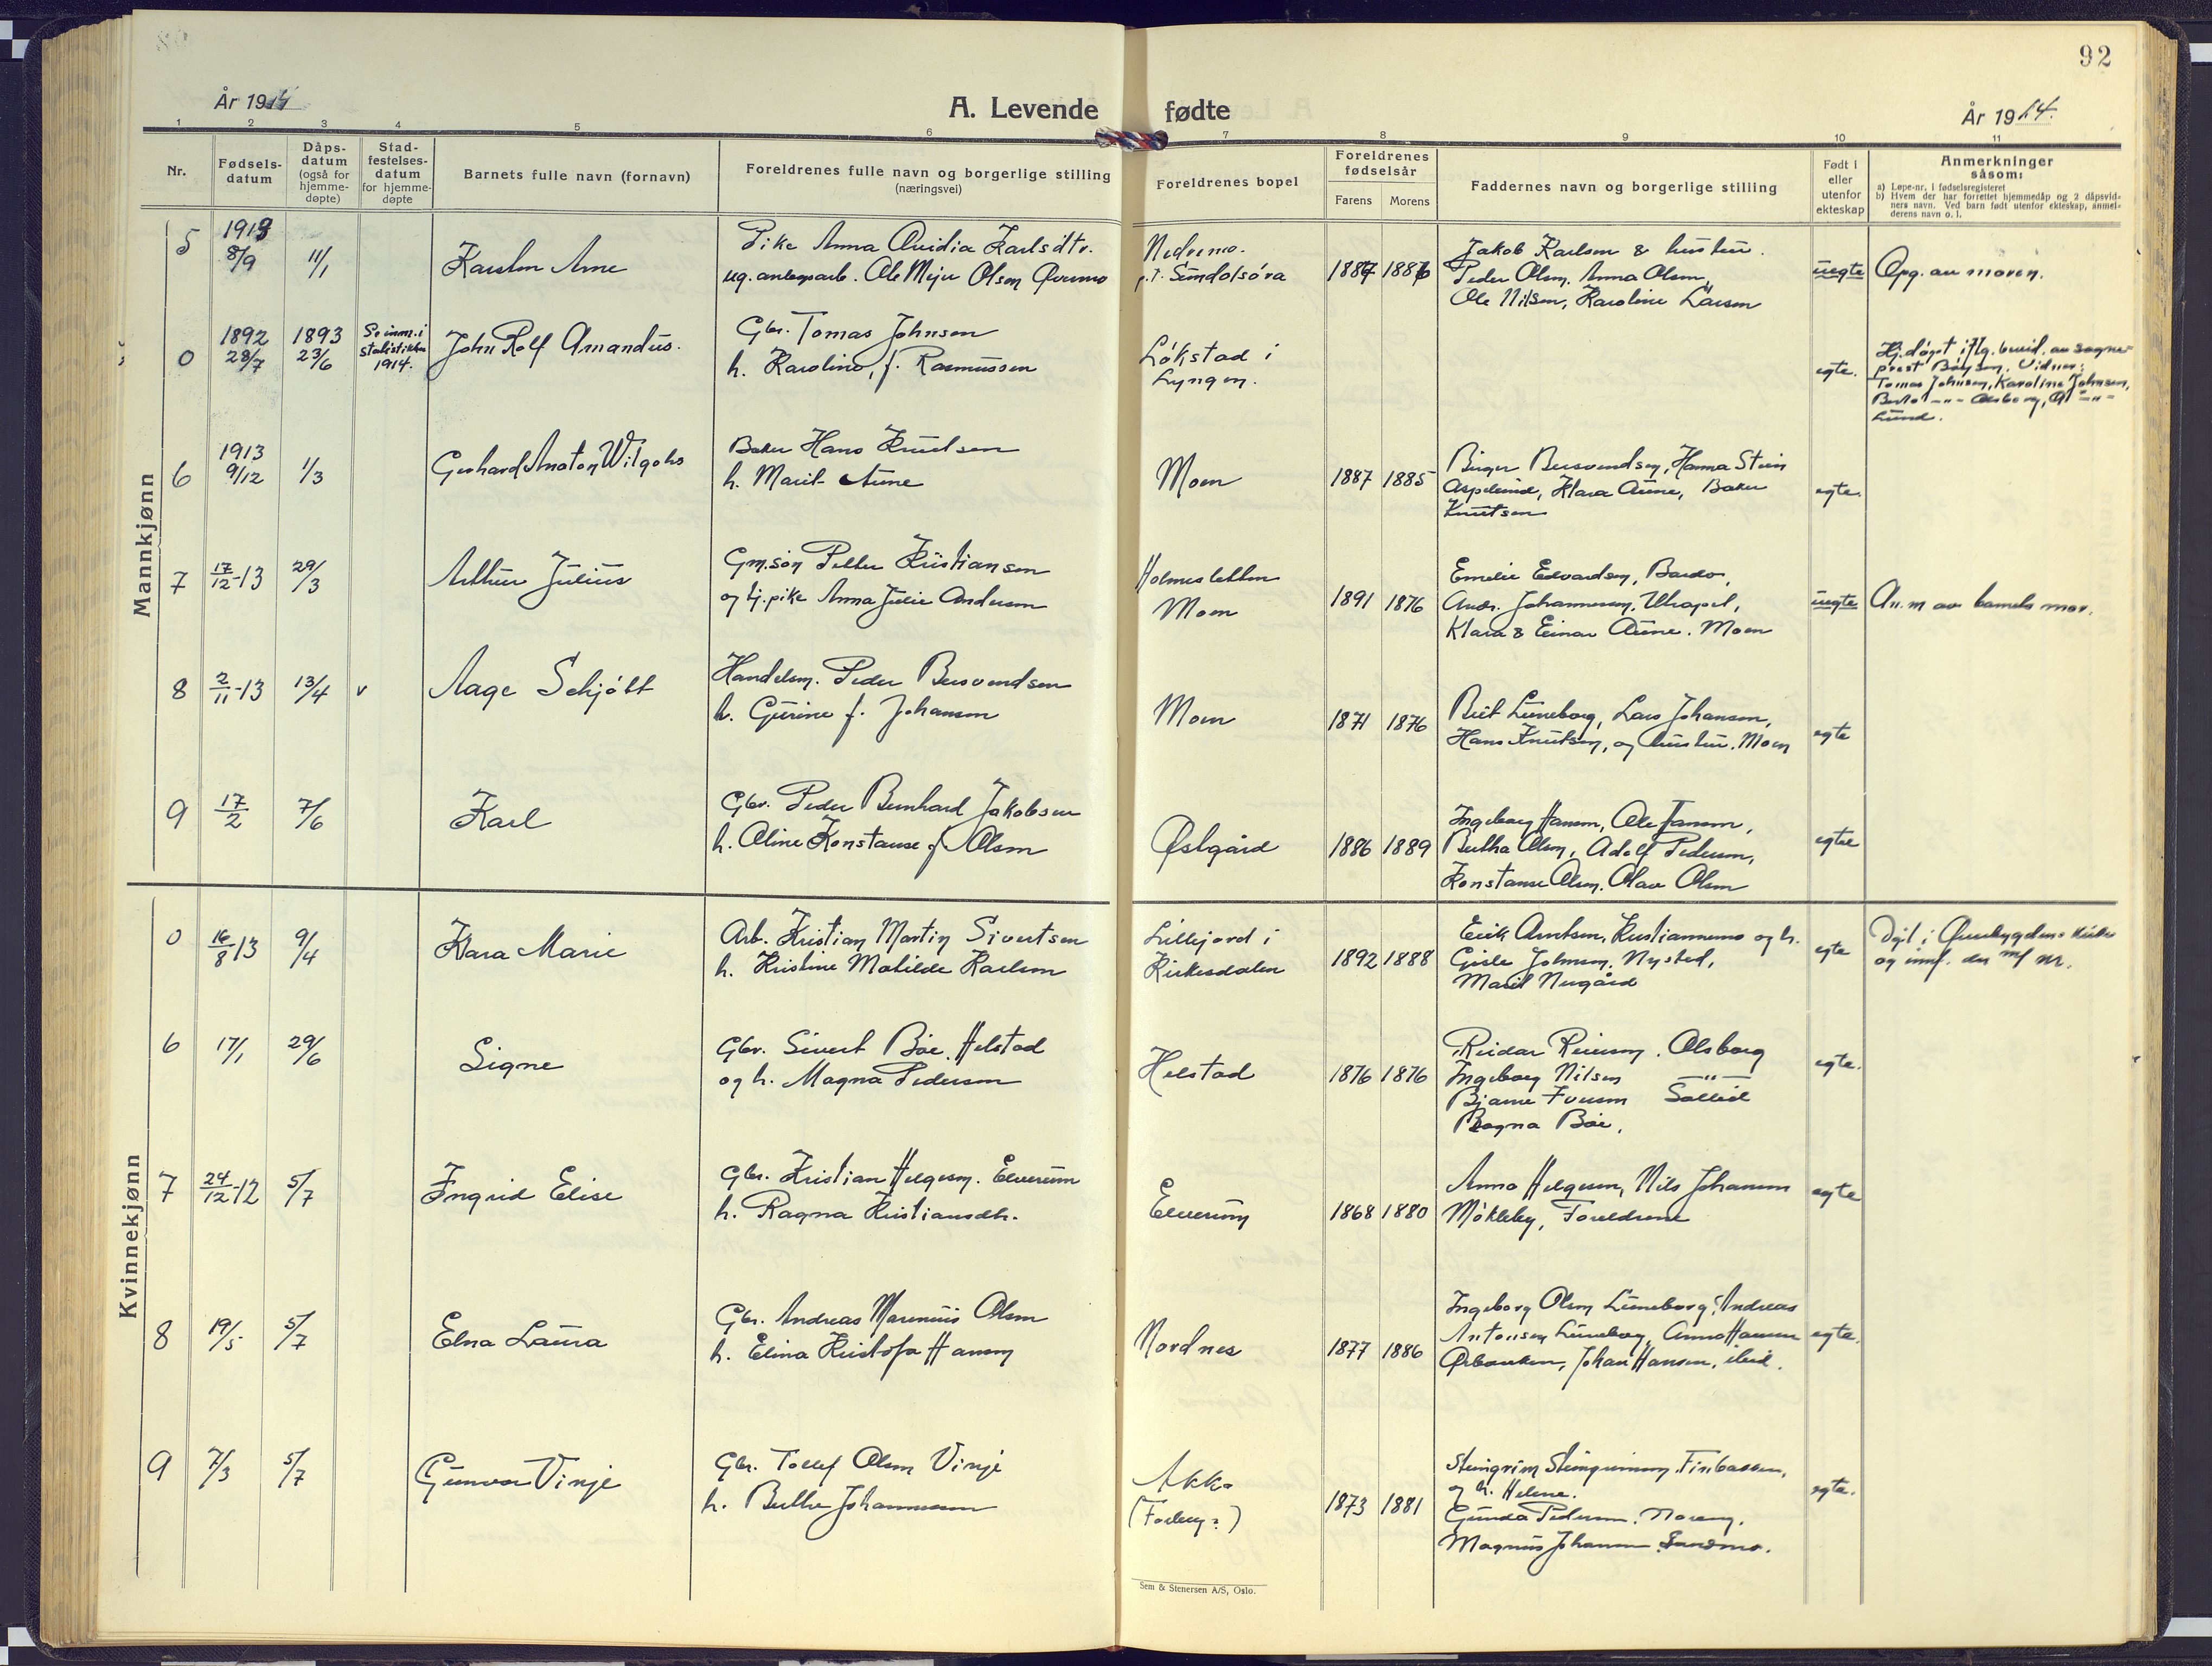 92
År 1914
A. Levende fødte
År 1914.
1 2 3 4 5 6 7 8 9 10 11
Nr.
Fødsels-
datum
Dåps-
datum
(også for
hjemme-
døpte)
Stad-
festelses-
datum
for hjemme-
døpte
Barnets fulle navn (fornavn)
Foreldrenes fulle navn og borgerlige stilling
(næringsvei)
Foreldrenes bopel
Foreldrenes
fødselsår
Farens Morens
Faddernes navn og borgerlige stilling
Født i
eller
utenfor
ekteskap
Anmerkninger
såsom:
a) Løpe-nr. i fødselsregisteret
b) Hvem der har forrettet hjemmedåp og 2 dåpsvid-
ners navn. Ved barn født utenfor ekteskap, anmel-
derens navn o. l.
Mannkjønn
5 1913 8/9 11/1 Karsten Arne
Pike Anna Ovidia Karlsdtr.
ug. anlegsarb. Ole Meyer Olsen Øvermo
Nedremo.
p.t. Sundalsøra
1887 1886
Jakob Karlsen & hustru.
Peder Olsen, Anna Olsen,
Ole Nilsen, Karoline Larsen
uegte Opg. av moren.
0 1892 28/7 1893 23/6
Se innm. i
statistikken
1914.
John Rolf Amandus.
Gbr. Tomas Johnsen
h. Karoline, f. Rasmussen
Løkstad i
Lyngen.
egte.
Hj.døpt iflg. bevid. av sogne-
prest Bøysen. Vidner:
Tomas Johnsen, Karoline Johnsen,
Lund.
6 1913 9/12 1/3 Gerhard Anton
Baker Hans Knutsen
h. Marit Aune
Moen
1887 1885
Birger Bersvendsen, Hanna Stein
Aspelund, Klara Aune, Baker
Knutsen
egte.
7 17/12-13 29/3 Arthur Julius
Gm.søn Petter Kristiansen
og tj.pike Anna Julie Andersen
Holmesletten
Moen
1891 1876
Emelie Edvardsen, Bardo,
Andr. Johannesen,
Klara & Einar Aune. Moen
uegte An.m av barnets mor.
8 2/11-13 13/4 v Aage Schjøtt
Handelsm. Peder Bersvendsen
h. Gurine f. Johansen
Moen
1871 1876
Berit Luneborg, Lars Johansen,
Hans Knutsen, og hustru. Moen
egte
9 17/2 7/6 Karl
Gbr. Peder Bernhard Jakobsen
h. Aline Konstanse f. Olsen
Østgård
1886 1889
Ingeborg Hansen, Ole Hansen,
Bertha Olsen, Adolf Pedersen,
Konstanse Olsen. Olav Olsen
egte
Kvinnekjønn
0 16/8-13 9/4 Klara Marie
Arb. Kristian Martin Sivertsen
h. Kristine Matilde Karlsen
Lillejord i
Kirkesdalen
1892 1888
Erik Arntsen, Kristiannemo og h.
Gisle Johnsen, Nysted,
Marit Nergård
egte
Døpt i Øverbygdens kirke
og innf. der m/ nr.
6 17/1 29/6 Signe
Gbr. Sivert Bøe. Helstad
og h. Magna Pedersen
Helstad
1876 1876
Reidar Reiersen. Olsborg
Ingeborg Nilsen —"—
Bjarne Iversen Sollid
Ragna Bøe.
egte.
7 24/12-12 5/7 Ingrid Elise
Gbr. Kristian Helgesen. Elverum
h. Ragna Kristiansdtr.
Elverum
1868 1880
Anna Helgesen, Nils Johansen
Møkleby, Foreldrene
egte
8 19/5 5/7 Elna Laura
Gbr. Andreas Marenius Olsen
h. Elina Kristofa Hansen
Nordnes
1877 1886
Ingeborg Olsen Luneborg, Andreas
Antonsen Luneborg, Anna Hansen
Ørbakken, Johan Hansen, ibid.
egte.
9 7/3 5/7 Gunvor Vinje
Gbr. Tollef Olsen Vinje
h. Berthe Johannesen
Akka
(Forbeg?)
1873 1881
Steingrim Steingrimsen, Finbakken,
og h. Helene.
Gunda Pedersen. Moren.
Magnus Johansen Sandmo.
egte.
Sem & Stenersen A/S, Oslo.